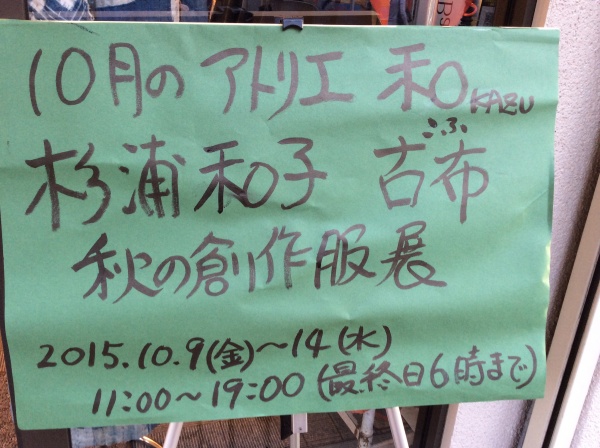 10月の アトリエ 和 KAZU
こふ
杉浦和子 古布
秋の創作服展
2015.10.9(金)～14(水)
11:00～19:00(最終日6時まで)